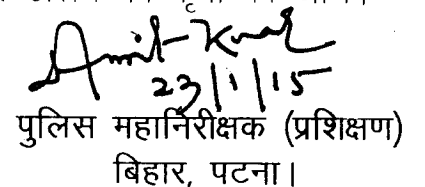 Amit Kumar
23/1/15
पुलिस महानिरीक्षक (प्रशिक्षण)
बिहार, पटना।